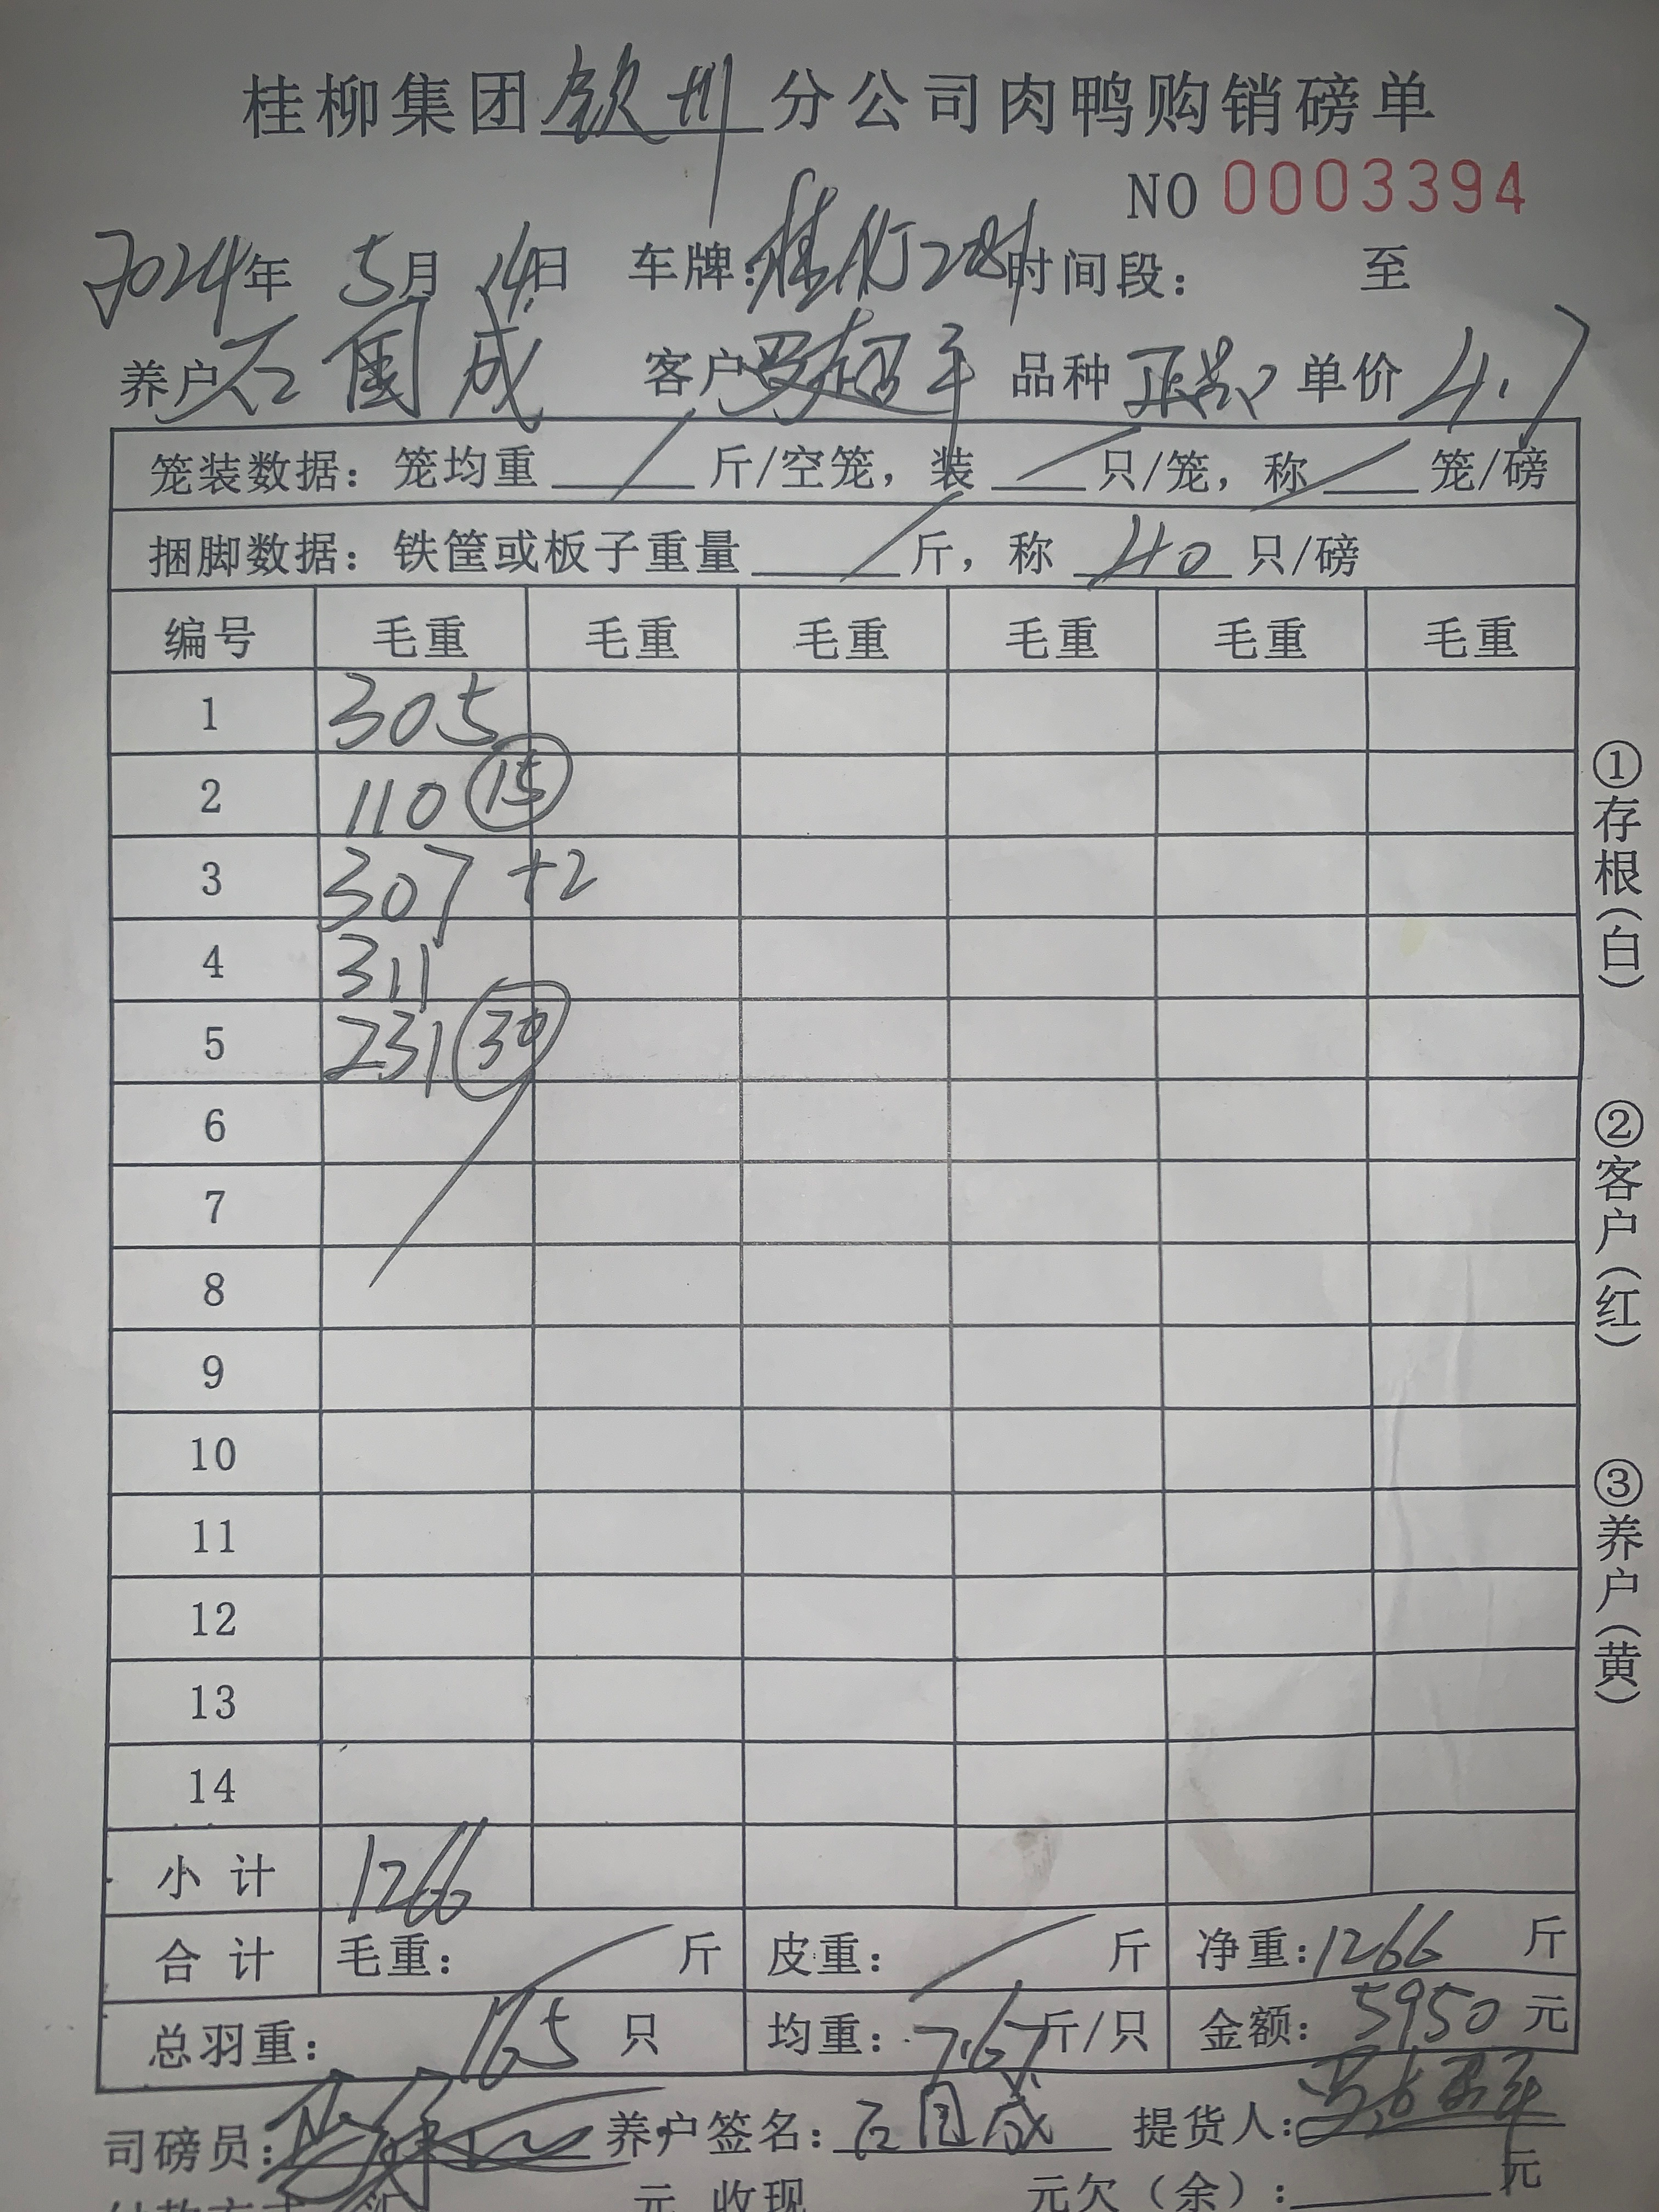 桂柳集团钦州分公司肉鸭购销磅单
NO 0003394
2024年 5月 14日 车牌: 时间段: 至
养户 石国成 客户 品种 正品 单价 4.7
笼装数据: 笼均重 / 斤/空笼, 装 / 只/笼, 称 / 笼/磅
捆脚数据: 铁筐或板子重量 / 斤, 称 40 只/磅
编号 毛重 毛重 毛重 毛重 毛重 毛重
1 305
2 110 ⑮
3 307 +2
4 311
5 231 ㉚
6
7
8
9
10
11
12
13
14
小计 1266
合计 毛重: / 斤 皮重: / 斤 净重: 1266 斤
总羽重: 165 只 均重: 7.67 斤/只 金额: 5950 元
司磅员: 养户签名: 石国成 提货人:
付款方式 元 收现 元欠(余): 元
①存根(白)
②客户(红)
③养户(黄)